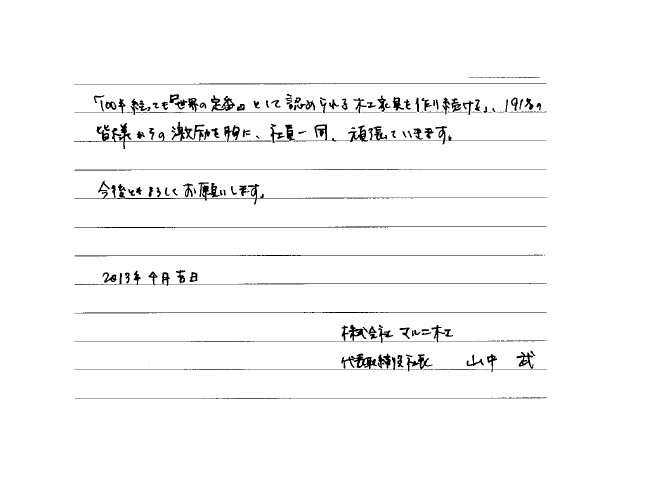 「100年経っても『世界の定番』として認められる木工家具を作り続ける」、191名の
皆様からの激励を胸に、社員一同、頑張っていきます。
今後ともよろしくお願いします。
2013年4月吉日
株式会社マルニ木工
代表取締役社長 山中 武